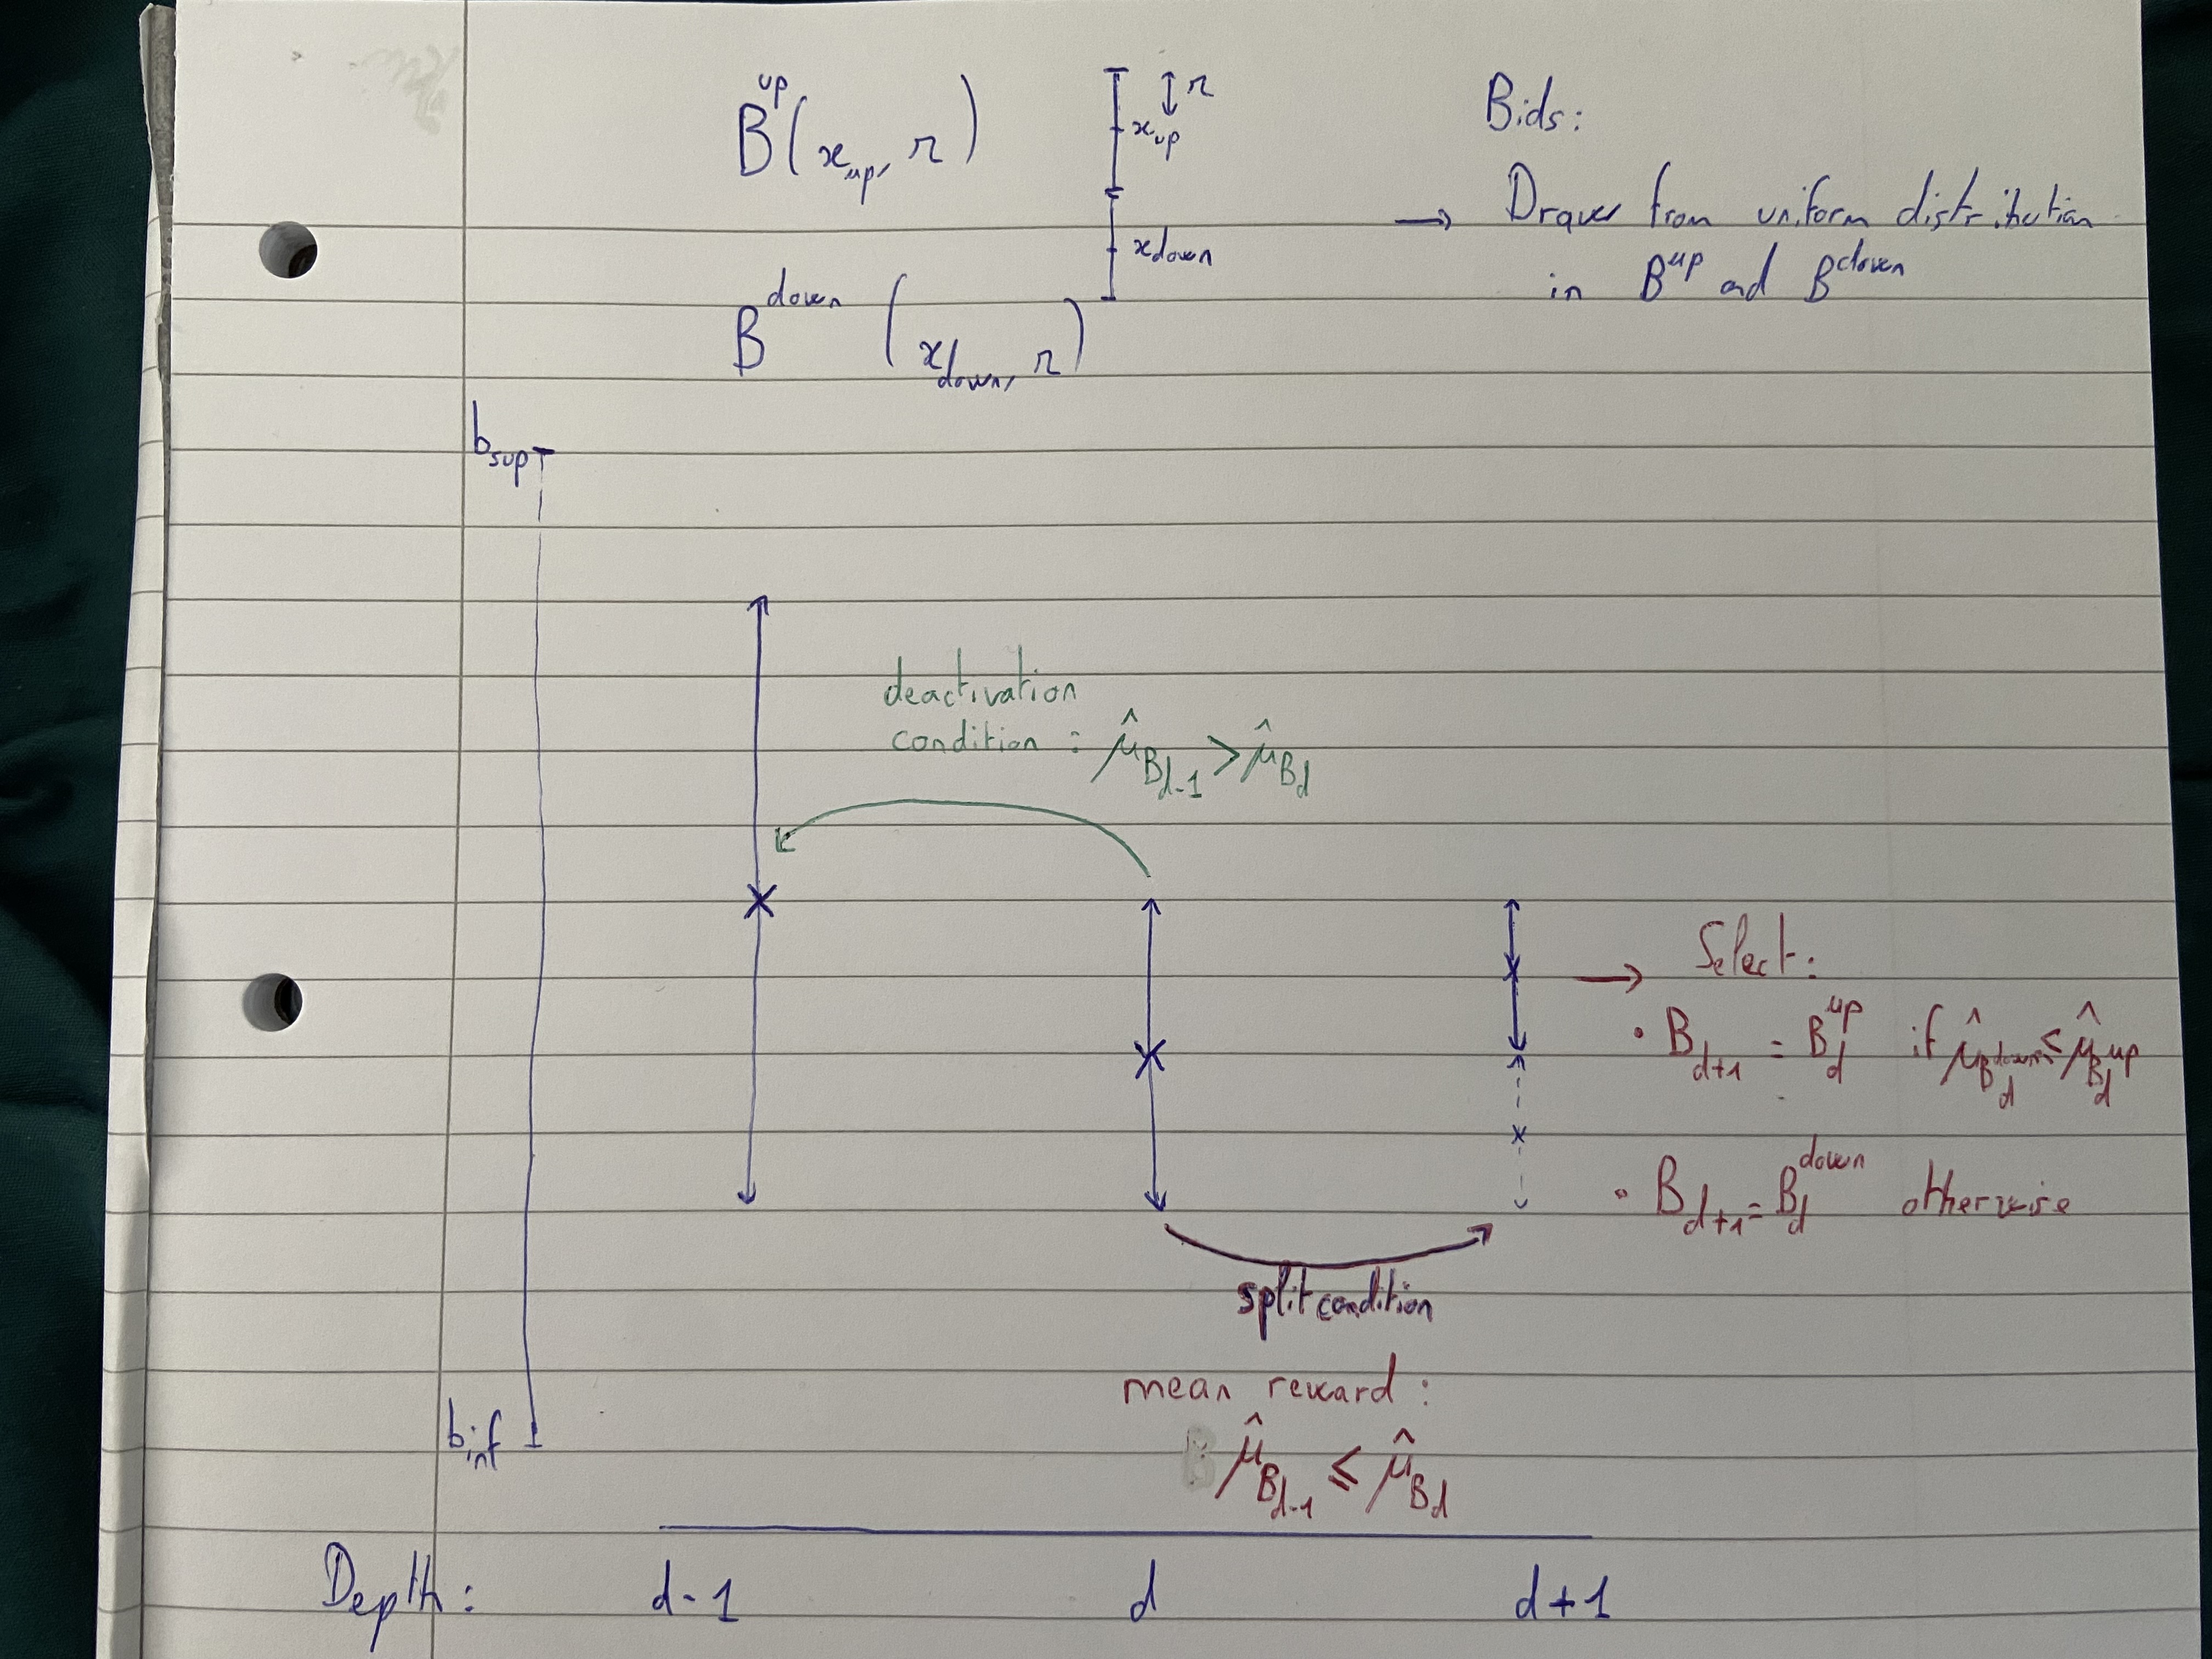 B^up (x_up, r)
r
x_up
x_down
B^down (x_down, r)
Bids:
→ Drawn from uniform distribution
in B^up and B^down
b_sup
deactivation
condition : μ̂_B_d-1 > μ̂_B_d
→ Select:
• B_d+1 = B_d^up if μ̂_B_d^down ≤ μ̂_B_d^up
• B_d+1 = B_d^down otherwise
split condition
mean reward :
μ̂_B_d-1 ≤ μ̂_B_d
b_inf
Depth: d-1 d d+1